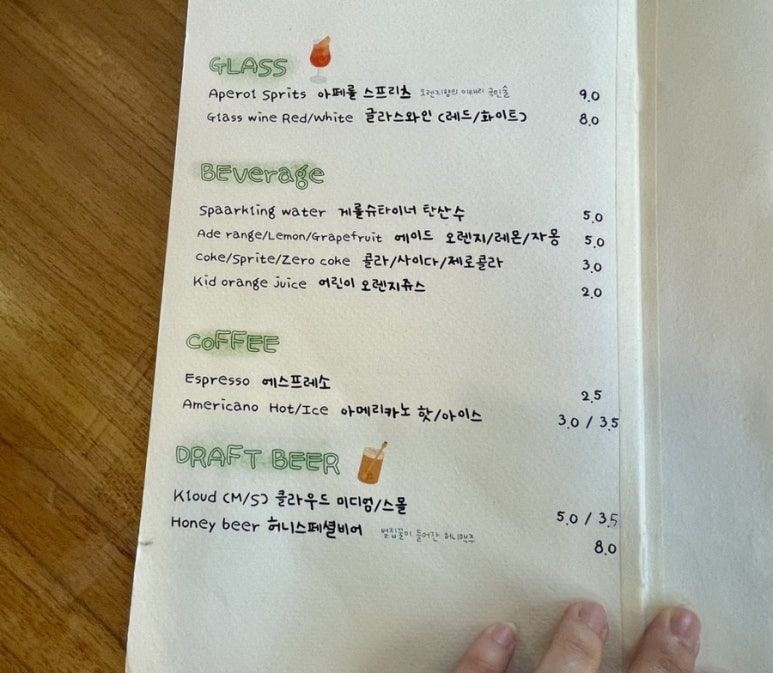 GLASS
Aperol Sprits 아페롤 스프리츠 오렌지향의 이태리 국민술 9.0
Glass wine Red/White 글라스와인 (레드/화이트) 8.0
BEverage
Spaarkling water 게롤슈타이너 탄산수 5.0
Ade range/Lemon/Grapefruit 에이드 오렌지/레몬/자몽 5.0
coke/Sprite/Zero coke 콜라/사이다/제로콜라 3.0
Kid orange juice 어린이 오렌지쥬스 2.0
CoFFEE
Espresso 에스프레소 2.5
Americano Hot/Ice 아메리카노 핫/아이스 3.0 / 3.5
DRAFT BEER
Kloud (M/S) 클라우드 미디엄/스몰 5.0 / 3.5
Honey beer 허니스페셜비어 벌집꿀이 들어간 허니맥주 8.0